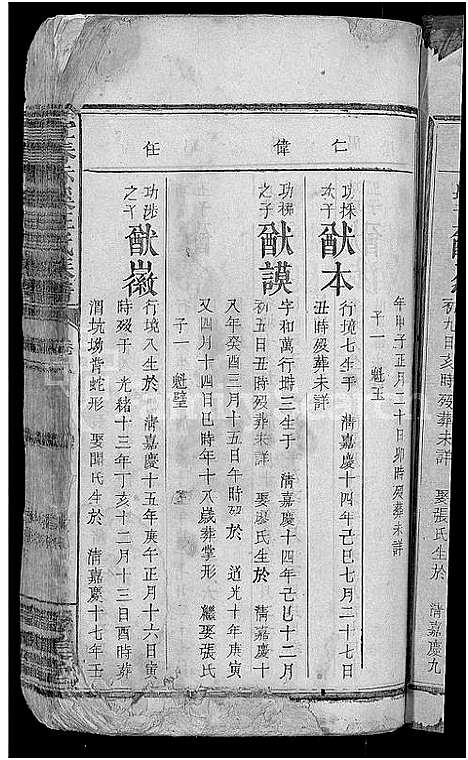 仁
偉
任
年甲子正月二十日卯時歿葬未詳
子一 魁玉
功採次子
猷本
行境七生于 清嘉慶十四年己巳七月二十七日
丑時歿葬未詳
之子
猷謨
字和萬行塒三生于 清嘉慶十四年己巳十二月
初五日丑時歿葬未詳 娶廖氏生於 清嘉慶十
八年癸酉三月十五日午時歿於 道光十年庚寅
又四月十四日巳時年十八歲葬掌形 繼娶張氏
子一 魁璧
功涉之子
猷徽
行境八生於 清嘉慶十五年庚午正月十六日寅
時歿于 光緒十三年丁亥十二月十三日酉時葬
渭坑塝背蛇形 娶聞氏生於 清嘉慶十七年壬
初九日亥時歿葬未詳 娶張氏生於 清嘉慶九